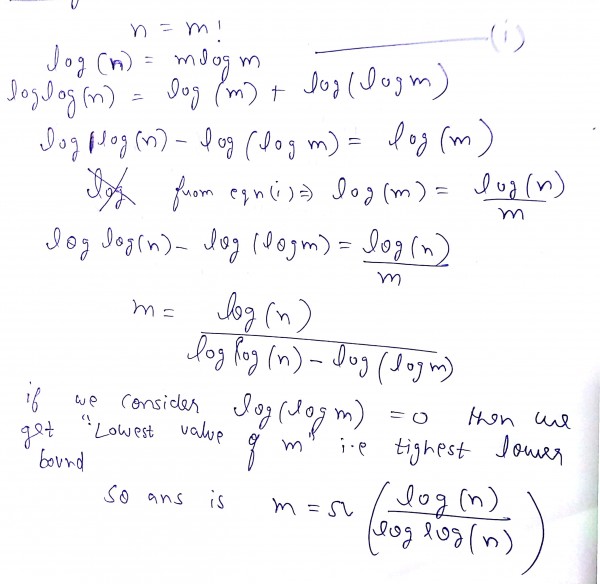 n = m!
log(n) = m log m ———(i)
log log(n) = log(m) + log(log m)
log log(n) - log(log m) = log(m)
from eqn(i) ⇒ log(m) = log(n)/m
log log(n) - log(log m) = log(n)/m
m = log(n)/(log log(n) - log(log m))
if we consider log(log m) = 0 then we
get "Lowest value of m" i.e tighest lower
bound
So ans is m = Ω(log(n)/log log(n))